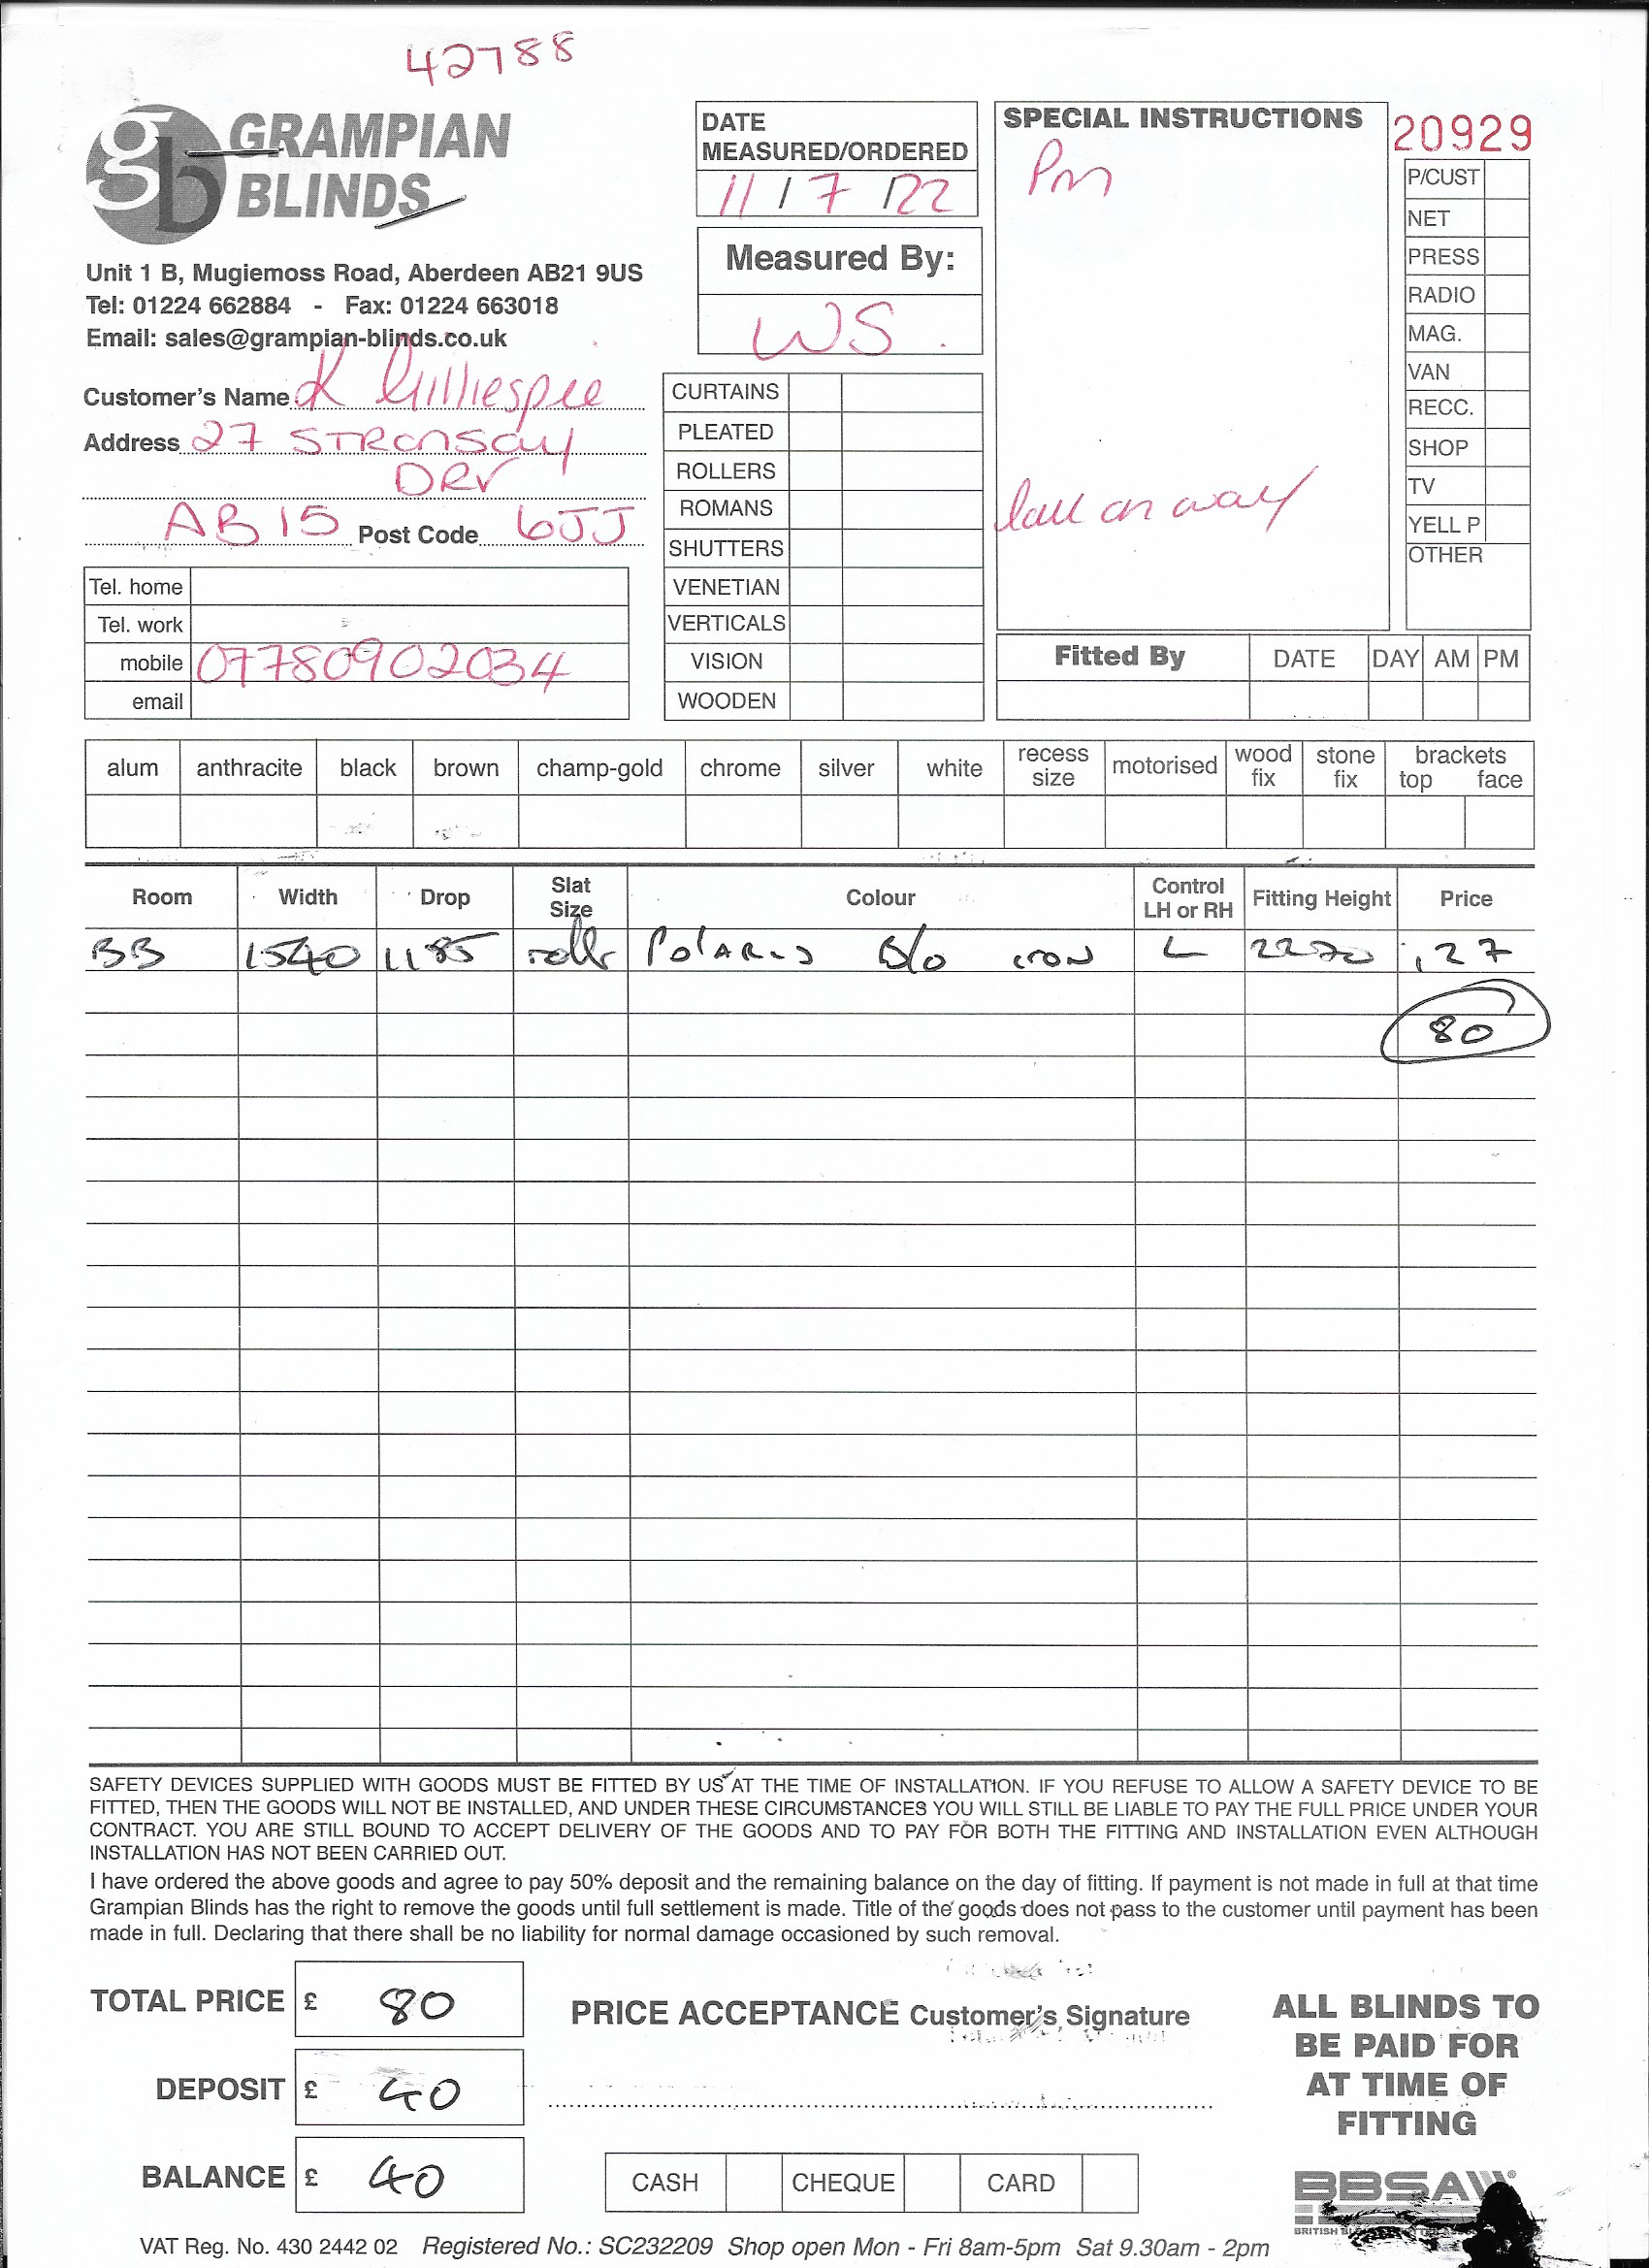 42788
GRAMPIAN
BLINDS
Unit 1 B, Mugiemoss Road, Aberdeen AB21 9US
Tel: 01224 662884 - Fax: 01224 663018
Email: sales@grampian-blinds.co.uk
DATE
MEASURED/ORDERED
11/7/22
Measured By:
WS
SPECIAL INSTRUCTIONS
Pm
Call on way
20929
P/CUST
NET
PRESS
RADIO
MAG.
VAN
RECC.
SHOP
TV
YELL P
OTHER
Customer's Name K Gillespie
Address 27 STRONSAY
DRV
AB15 Post Code 6JJ
Tel. home
Tel. work
mobile 07780902034
email
CURTAINS
PLEATED
ROLLERS
ROMANS
SHUTTERS
VENETIAN
VERTICALS
VISION
WOODEN
Fitted By DATE DAY AM PM
alum anthracite black brown champ-gold chrome silver white recess size motorised wood fix stone fix brackets top face
Room Width Drop Slat Size Colour Control LH or RH Fitting Height Price
BB 1540 1185 rollr POLARIS B/O IRON L 2270 127
80
SAFETY DEVICES SUPPLIED WITH GOODS MUST BE FITTED BY US AT THE TIME OF INSTALLATION. IF YOU REFUSE TO ALLOW A SAFETY DEVICE TO BE
FITTED, THEN THE GOODS WILL NOT BE INSTALLED, AND UNDER THESE CIRCUMSTANCES YOU WILL STILL BE LIABLE TO PAY THE FULL PRICE UNDER YOUR
CONTRACT. YOU ARE STILL BOUND TO ACCEPT DELIVERY OF THE GOODS AND TO PAY FOR BOTH THE FITTING AND INSTALLATION EVEN ALTHOUGH
INSTALLATION HAS NOT BEEN CARRIED OUT.
I have ordered the above goods and agree to pay 50% deposit and the remaining balance on the day of fitting. If payment is not made in full at that time
Grampian Blinds has the right to remove the goods until full settlement is made. Title of the goods does not pass to the customer until payment has been
made in full. Declaring that there shall be no liability for normal damage occasioned by such removal.
TOTAL PRICE £ 80
DEPOSIT £ 40
BALANCE £ 40
PRICE ACCEPTANCE Customer's Signature
CASH CHEQUE CARD
ALL BLINDS TO
BE PAID FOR
AT TIME OF
FITTING
BBSA
BRITISH
VAT Reg. No. 430 2442 02 Registered No.: SC232209 Shop open Mon - Fri 8am-5pm Sat 9.30am - 2pm